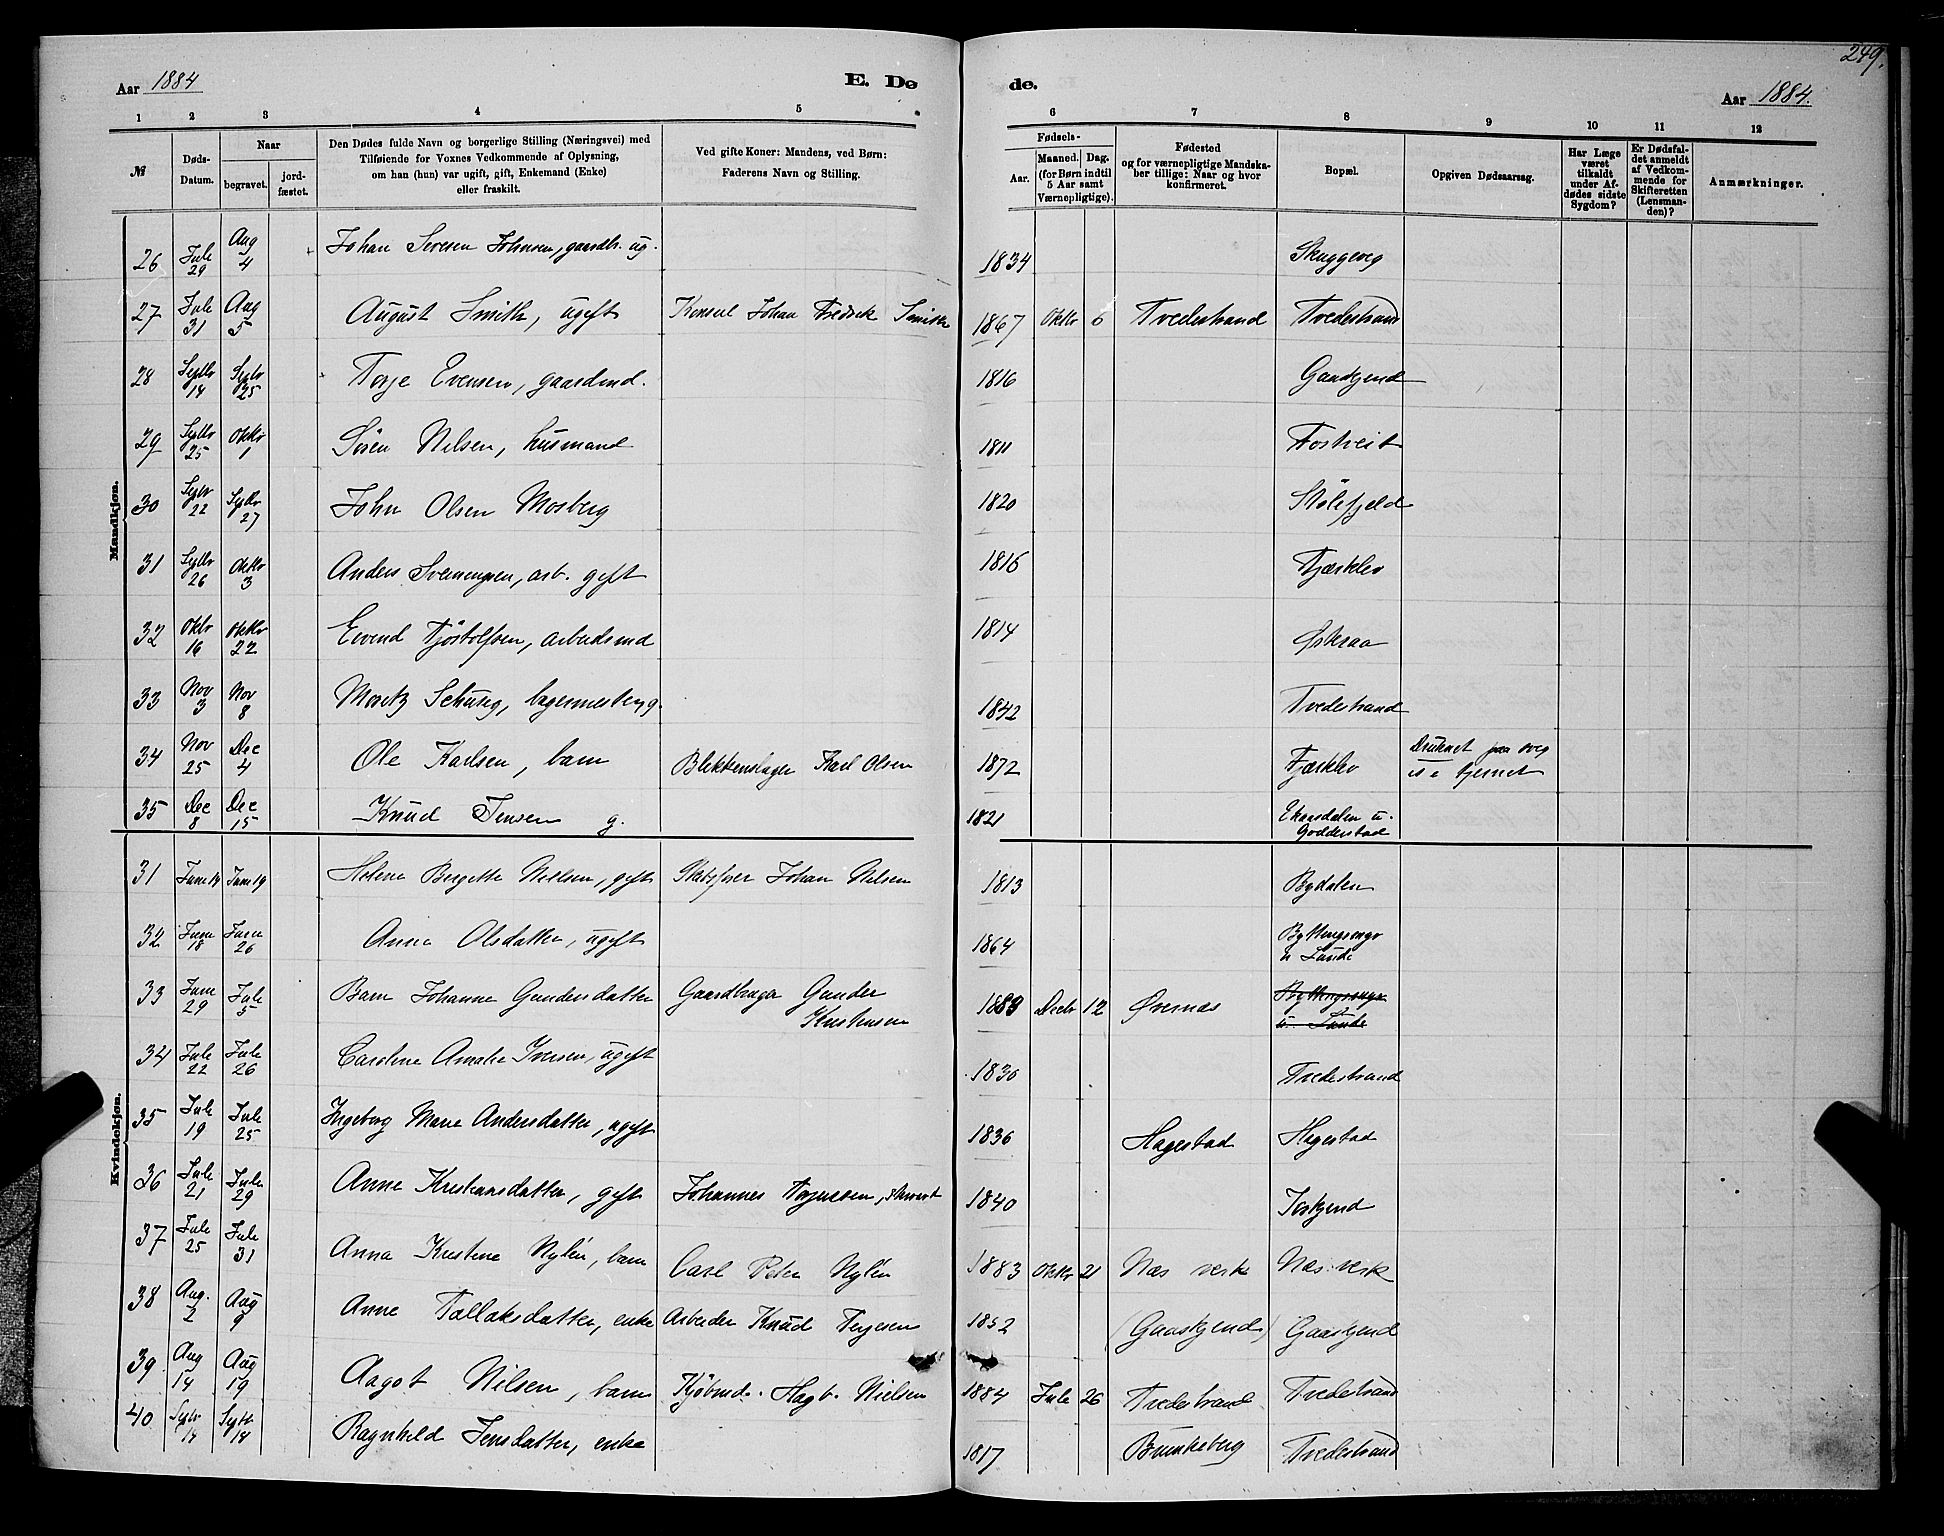 249.
Aar 1884
E. Dø
de.
Aar 1884.
1 2 3 4 5
6 7 8 9 10 11 12
№
Døds-Datum.
Naar
begravet.
jord-fæstet.
Den Dødes fulde Navn og borgerlige Stilling (Næringsvei) med
Tilføiende for Voxnes Vedkommende af Oplysning,
om han (hun) var ugift, gift, Enkemand (Enke)
eller fraskilt.
Ved gifte Koner: Mandens, ved Børn:
Faderens Navn og Stilling.
Fødsels-
Aar.
Maaned. Dag.
(for Børn indtil
5 Aar samt
Værnepligtige).
Fødested
og for værnepligtige Mandska-
ber tillige: Naar og hvor
konfirmeret.
Bopæl.
Opgiven Dødsaarsag.
Har Læge
været
tilkaldt
under Af-
dødes sidste
Sygdom?
Er Dødsfal-
det anmeldt
af Vedkom-
mende for
Skifteretten
(Lensman-
den)?
Anmærkninger.
Mandkjøn.
26 Jule 29 Aug 4 Johan Johnsen, ug. 1834
27 Jule 31 Aug 5 August Smith, ugift Konsul Johan Fredrik Smith 1867 Oktbr 6 Tvedestrand Tvedestrand
28 Septbr 14 Septbr 25 Terje Evensen, gaardmd. 1816 Gaaskjend
29 Septbr 25 Oktbr 1 Søren Nilsen, husmand 1811 Fosveit
30 Septbr 22 Septbr 27 John Olsen Mosberg 1820 Stölefjeld
31 Septbr 26 Oktbr 3 Anders Svenningsen, arb. gift 1816 Fjærklev
32 Oktbr 16 Oktbr 22 Eivind Tjöstolfsen, arbeidsmd 1814
33 Nov 3 Nov 8 Moritz Schurig, bagermester, g. 1842 Tvedestrand
34 Nov 25 Dec 4 Ole Karlsen, barn Blikkenslager Karl Olsen 1872 Fjærklev Druknet paa
is i tjernet
35 Dec 8 Dec 15 Knud Jensen g. 1821 Ekaasdalen u.
Godderstad
Kvindekjøn.
31 June 14 June 19 Helene Birgitte Nielsen, gift Skibsfører Johan Nilsen 1813 Bydalen
32 June 18 June 26 Anne Olsdatter, ugift 1864 Byttingsmyr
u Sunde
33 June 29 Jule 5 Barn Johanne Gundersdatter Gaardbruger Gunder
Kristensen 1883 Decbr 12 Øvernæs Byttingsmyr
u. Sunde
34 Jule 22 Jule 26 Caroline Amalie Iversen, ugift 1830 Tvedestrand
35 Jule 19 Jule 25 Ingeborg Marie Andersdatter, ugift 1836 Hagestad Hagestad
36 Jule 21 Jule 29 Anne Kristiansdatter, gift Johannes Terjussen, 1840
37 Jule 25 Jule 31 Anna Kristine Nylén, barn Carl Peter Nylén 1883 Oktbr 21 Næs verk Næs verk
38 Aug. 2 Aug 9 Anne Tallaksdatter, enke Arbeider Knud Terjesen 1852 (Gaaskjend) Gaaskjend
39 Aug 14 Aug 19 Aagot Nilsen, barn Kjøbmd. Hagb. Nielsen 1884 Jule 26 Tvedestrand Tvedestrand
40 Septbr 14 Septbr 18 Ragnhild Jensdatter, enke 1817 Brunkeberg Tvedestrand